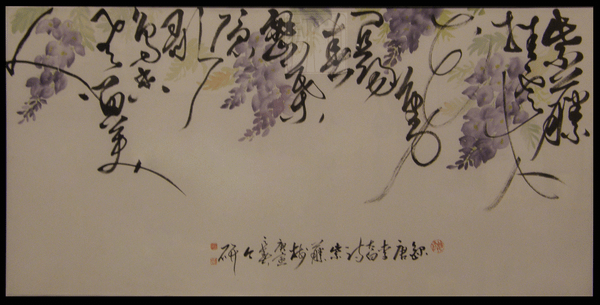 紫藤
挂雲木
花蔓
宜陽
春
密葉
隱
歌
鳥香
風留美
人
錄唐李白詩紫藤樹庚寅